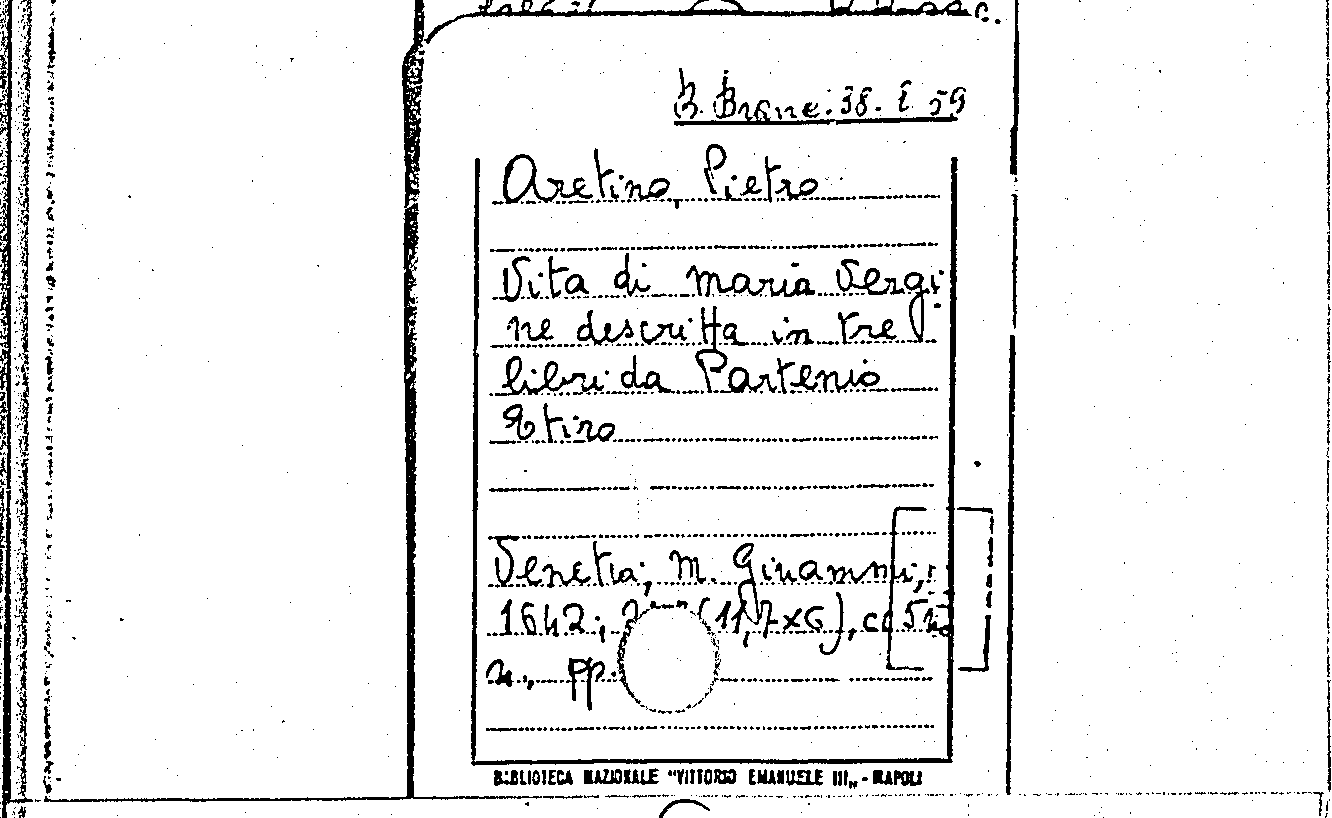 B. Branc. 38. E 59
Aretino, Pietro
Vita di Maria Vergi
ne descritta in tre
libri da Partenio
Etiro
Venetia, M. Ginammi,
1642; (11,7x6), cc 5
n., pp.
BIBLIOTECA NAZIONALE "VITTORIO EMANUELE III„ - NAPOLI